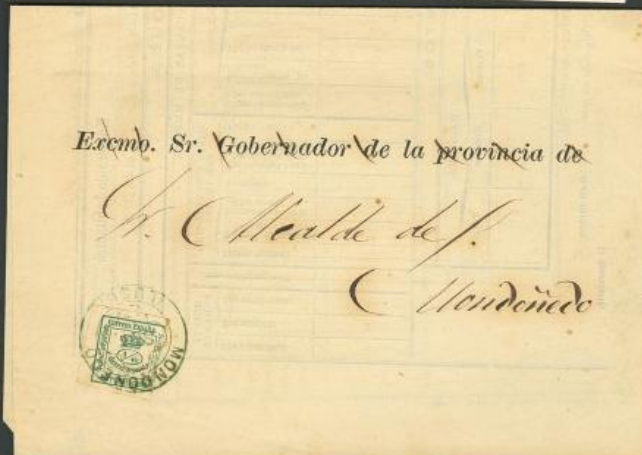 Excmo. Sr. Gobernador de la provincia de
Sr. Alcalde de
Mondoñedo
CORREOS ESPAÑA
1/4
MONDOÑEDO